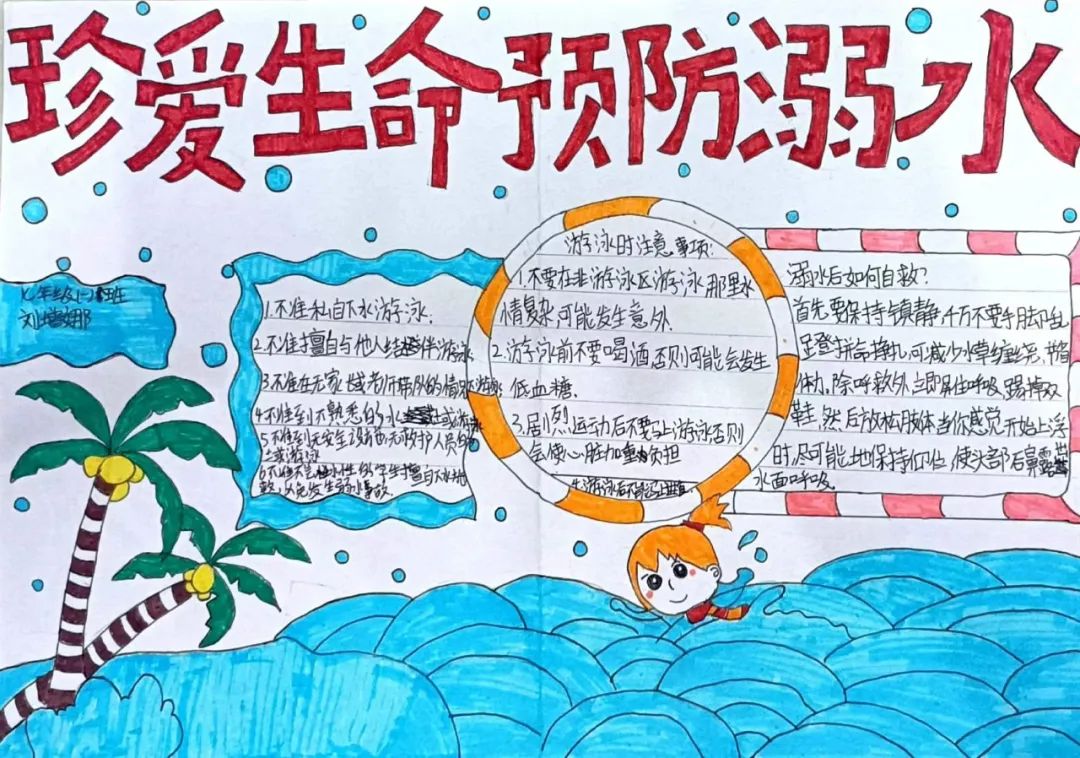 珍爱生命预防溺水
七年级(一)班
刘娜
1.不准私自下水游泳;
2.不准擅自与他人结伴游泳
3.不准在无家长或老师带队的情况游泳
4.不准到不熟悉的水域游泳
5.不准到无安全设施、无救护人员的
水域游泳
6.不准不会水性的学生擅自下水施
救,以免发生溺水事故.
游泳时注意事项:
1.不要在非游泳区游泳,那里水
情复杂,可能发生意外.
2.游泳前不要喝酒否则可能会发生
低血糖.
3.剧烈运动后不要马上游泳否则
会使心脏加重负担
4.游泳后不能马上进食.
溺水后如何自救?
首先要保持镇静,千万不要手脚乱
蹬拼命挣扎,可减少水草缠绕,节省
体力,除呼救外,立即屏住呼吸,踢掉双
鞋,然后放松肢体当你感觉开始上浮
时,尽可能地保持仰位,使头部后鼻露出
水面呼吸.